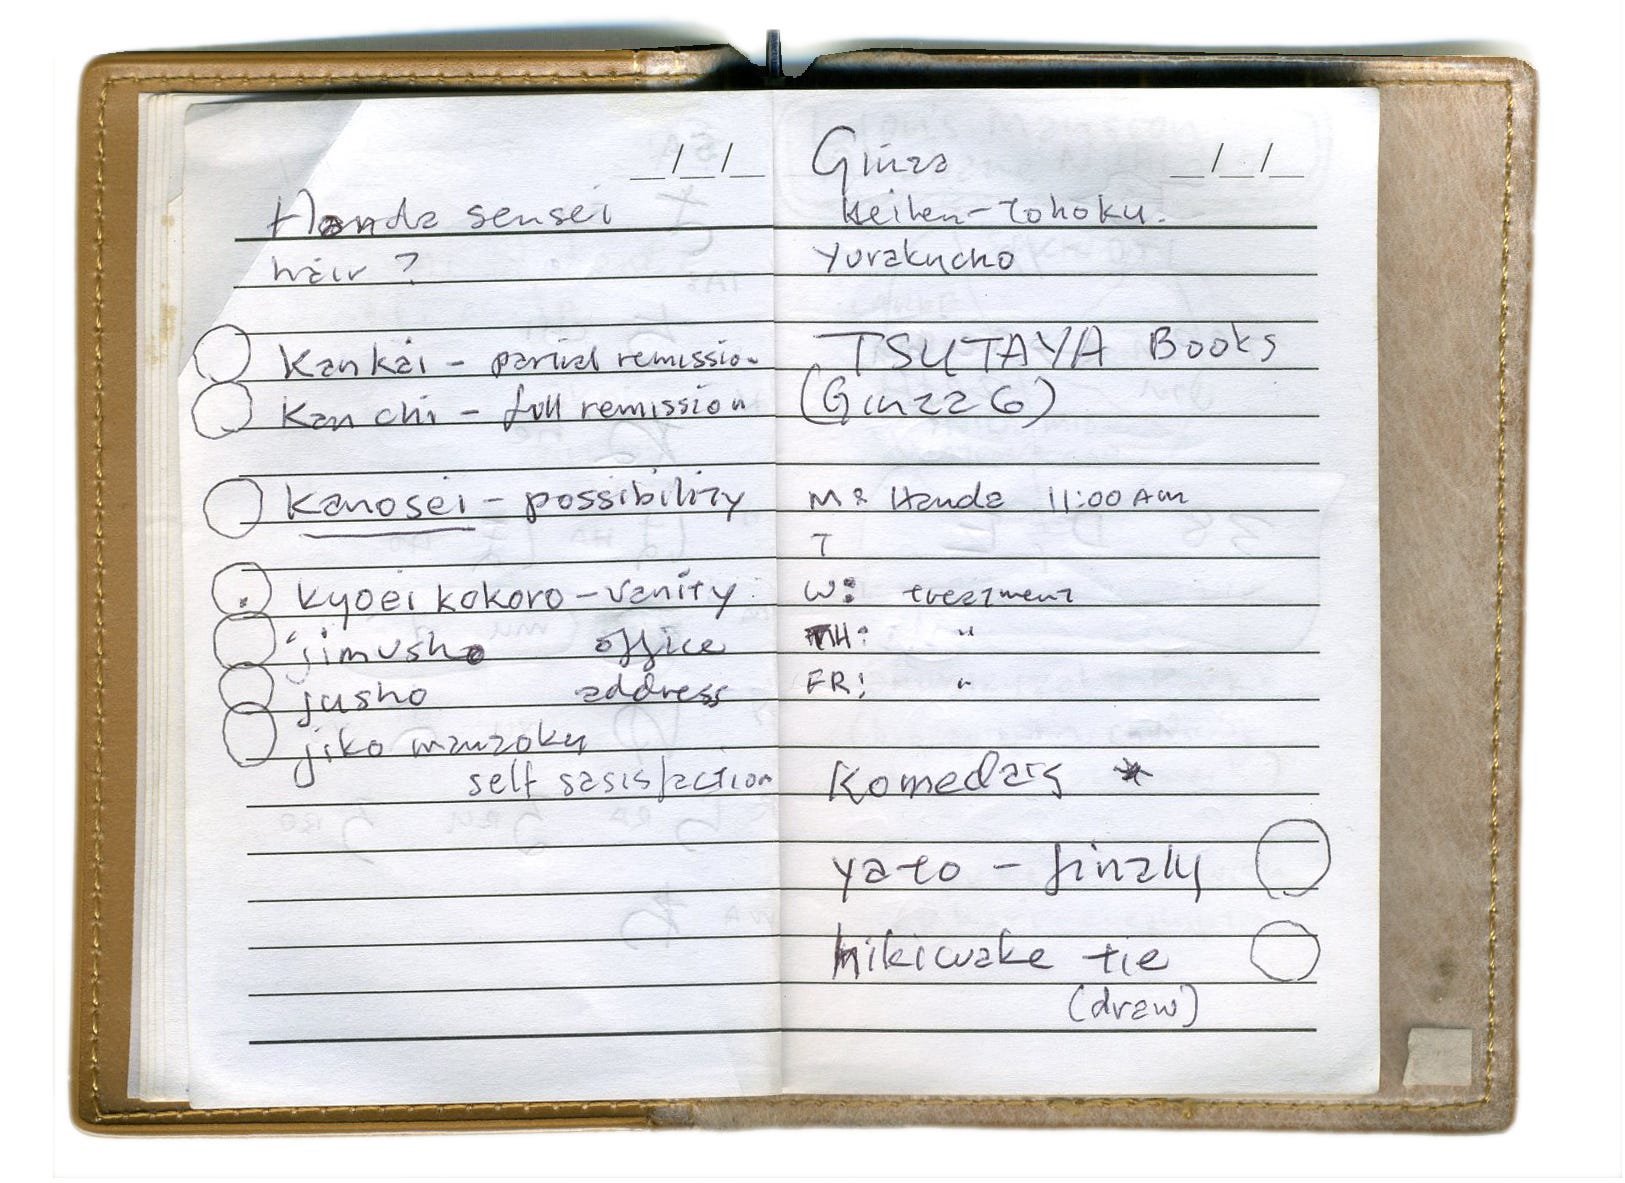 Handa sensei
hair ?
Kankai - partial remission
Kanchi - full remission
Kanosei - possibility
Kyoei kokoro - vanity
jimusho office
jusho address
jiko manzoku
self sasisfaction
Ginza
Keihen-Tohoku.
Yurakucho
TSUTAYA Books
(Ginza 6)
M: Handa 11:00 AM
T
W: treatment
TH: "
FR: "
Komedas *
yato - finaly
hikiwake tie
(draw)